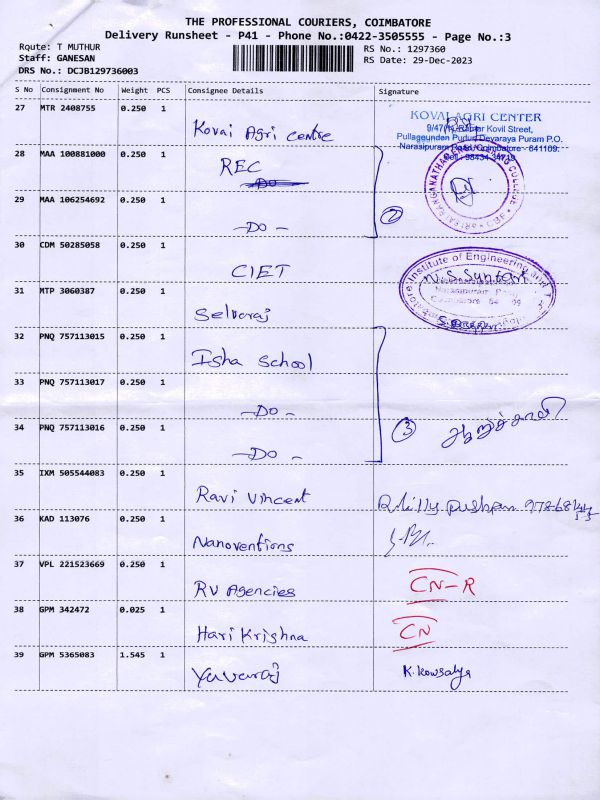 THE PROFESSIONAL COURIERS, COIMBATORE
Delivery Runsheet - P41 - Phone No.:0422-3505555 - Page No.:3
Route: T MUTHUR
Staff: GANESAN
DRS No.: DCJB129736003
RS No.: 1297360
RS Date: 29-Dec-2023
S No Consignment No Weight PCS Consignee Details Signature
27 MTR 2408755 0.250 1 Kovai Agri Centre
KOVAI AGRI CENTER
Kovil Street,
Pullagoundan Pudur, Devaraya Puram P.O.
28 MAA 100881000 0.250 1 REC
29 MAA 106254692 0.250 1 -DO-
2
30 CDM 50285058 0.250 1 CIET
Institute of Engineering and
31 MTP 3060387 0.250 1 Selveraj
32 PNQ 757113015 0.250 1 Isha School
33 PNQ 757113017 0.250 1 -DO-
34 PNQ 757113016 0.250 1 -DO-
3
35 IXM 505544083 0.250 1 Ravi Vincent
36 KAD 113076 0.250 1 Nanoventions
37 VPL 221523669 0.250 1 RV Agencies CN-R
38 GPM 342472 0.025 1 Hari Krishna CN
39 GPM 5365083 1.545 1 Yuvaraj K. Kowsalya